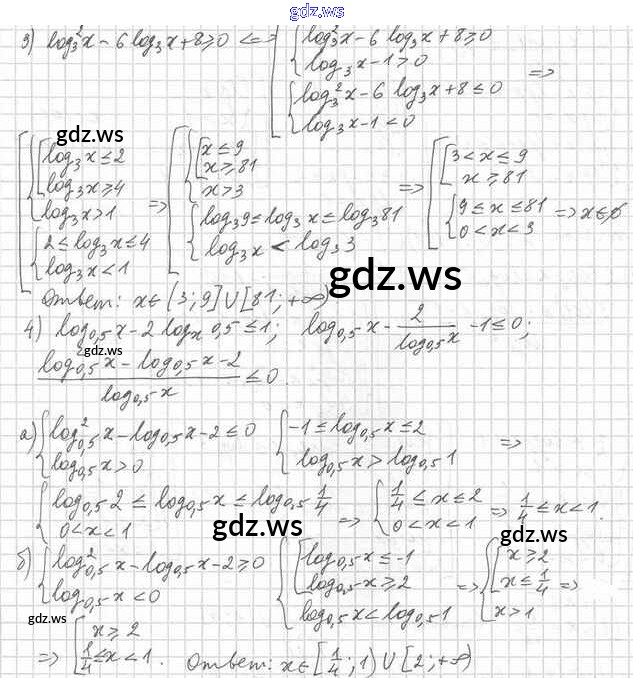 gdz.ws
3) log₃²x - 6 log₃x + 8 ≥ 0 <=> [ { log₃²x - 6 log₃x + 8 ≥ 0
log₃x - 1 > 0
{ log₃²x - 6 log₃x + 8 ≤ 0 =>
log₃x - 1 < 0
gdz.ws
[ { [ log₃x ≤ 2
log₃x ≥ 4
log₃x > 1
{ 2 ≤ log₃x ≤ 4
log₃x < 1
=> [ { [ x ≤ 9
x ≥ 81
x > 3
{ log₃9 ≤ log₃x ≤ log₃81
log₃x < log₃3
=> [ [ 3 < x ≤ 9
x ≥ 81
{ 9 ≤ x ≤ 81
0 < x < 3 => x ∈ ∅
gdz.ws
Ответ: x ∈ (3; 9] ∪ [81; +∞)
4) log₀,₅x - 2 logₓ0,5 ≤ 1; log₀,₅x - 2/log₀,₅x - 1 ≤ 0;
gdz.ws
(log²₀,₅x - log₀,₅x - 2)/log₀,₅x ≤ 0.
а) { log²₀,₅x - log₀,₅x - 2 ≤ 0
log₀,₅x > 0
{ -1 ≤ log₀,₅x ≤ 2
log₀,₅x > log₀,₅1 =>
{ log₀,₅2 ≤ log₀,₅x ≤ log₀,₅ 1/4
0 < x < 1
=> { 1/4 ≤ x ≤ 2
0 < x < 1 => 1/4 ≤ x < 1.
gdz.ws
gdz.ws
б) { log²₀,₅x - log₀,₅x - 2 ≥ 0
log₀,₅x < 0
{ [ log₀,₅x ≤ -1
log₀,₅x ≥ 2
log₀,₅x < log₀,₅1
=> { [ x ≥ 2
x ≤ 1/4 =>
x > 1
gdz.ws
=> [ x ≥ 2
1/4 ≤ x < 1. Ответ: x ∈ [1/4; 1) ∪ [2; +∞)
gdz.ws